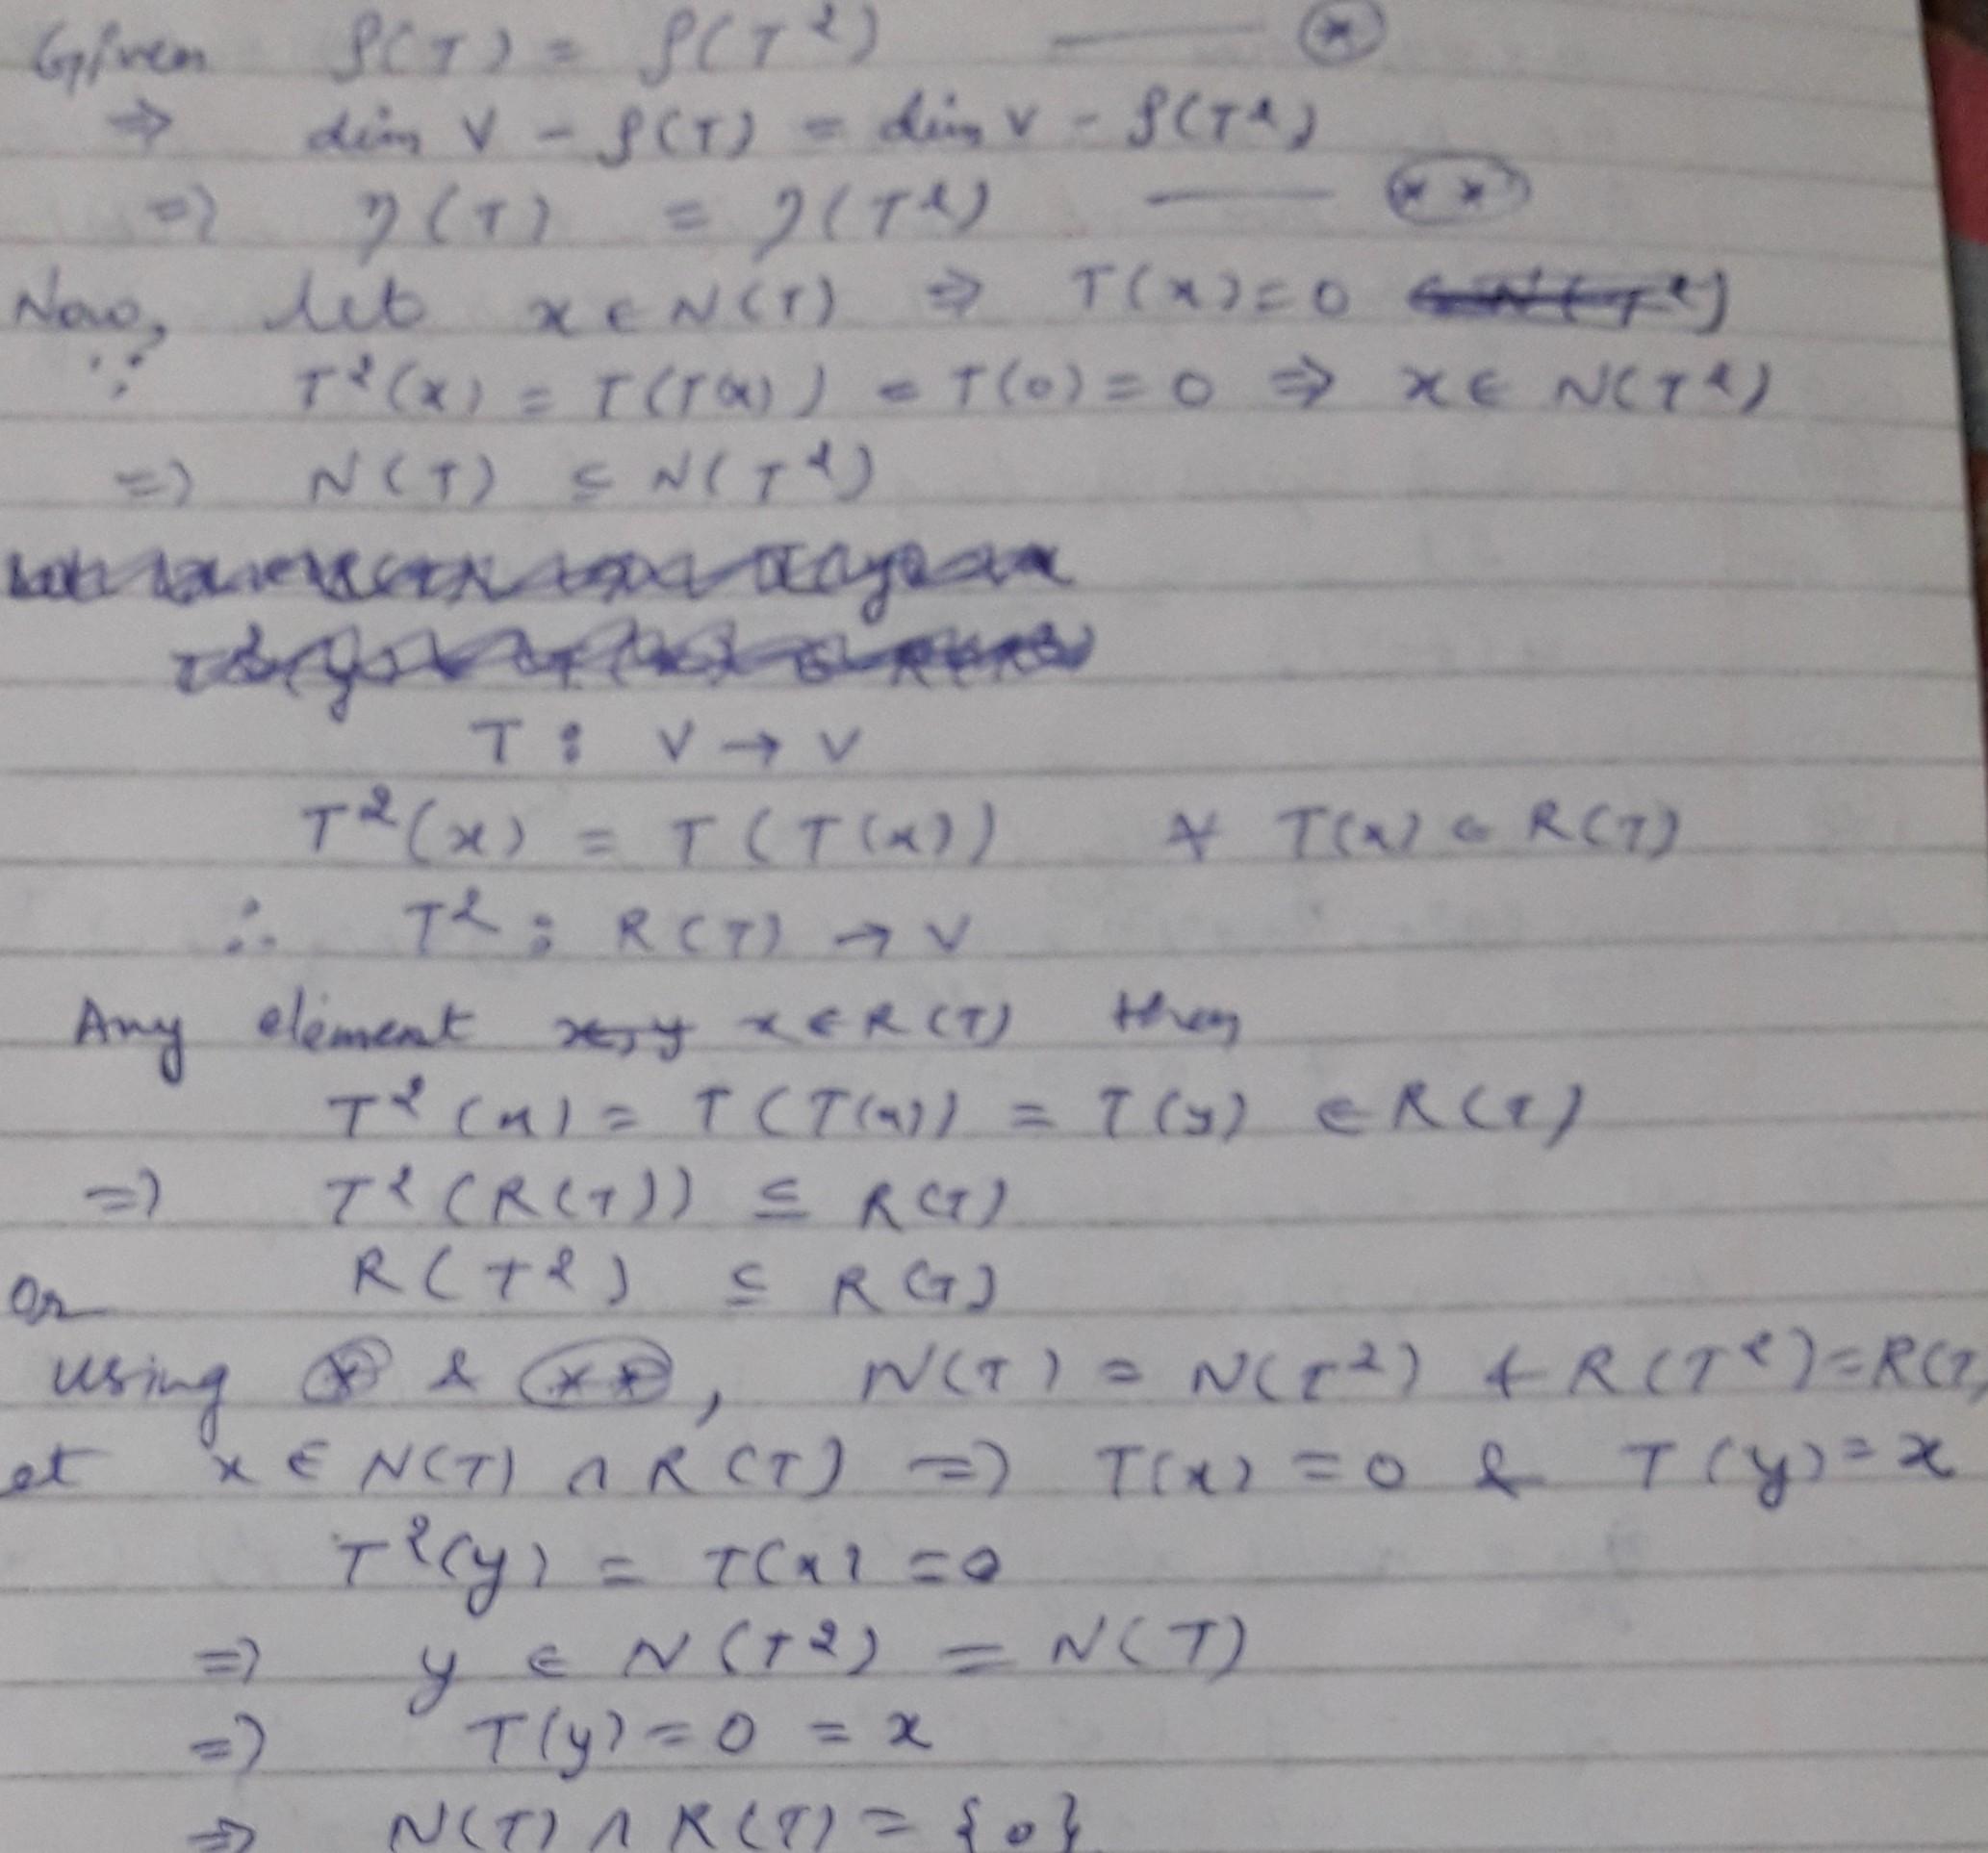 Given ρ(T) = ρ(T²) —— (*)
⇒ dim V - ρ(T) = dim V - ρ(T²)
⇒ η(T) = η(T²) —— (**)
Now, let x ∈ N(T) ⇒ T(x) = 0
∵ T²(x) = T(T(x)) = T(0) = 0 ⇒ x ∈ N(T²)
⇒ N(T) ⊆ N(T²)
T : V → V
T²(x) = T(T(x)) ∀ T(x) ∈ R(T)
∴ T² : R(T) → V
Any element x ∈ R(T) then
T²(x) = T(T(x)) = T(y) ∈ R(T)
⇒ T²(R(T)) ⊆ R(T)
Or R(T²) ⊆ R(T)
using (*) & (**), N(T) = N(T²) & R(T²) = R(T)
et x ∈ N(T) ∩ R(T) ⇒ T(x) = 0 & T(y) = x
T²(y) = T(x) = 0
⇒ y ∈ N(T²) = N(T)
⇒ T(y) = 0 = x
⇒ N(T) ∩ R(T) = {0}